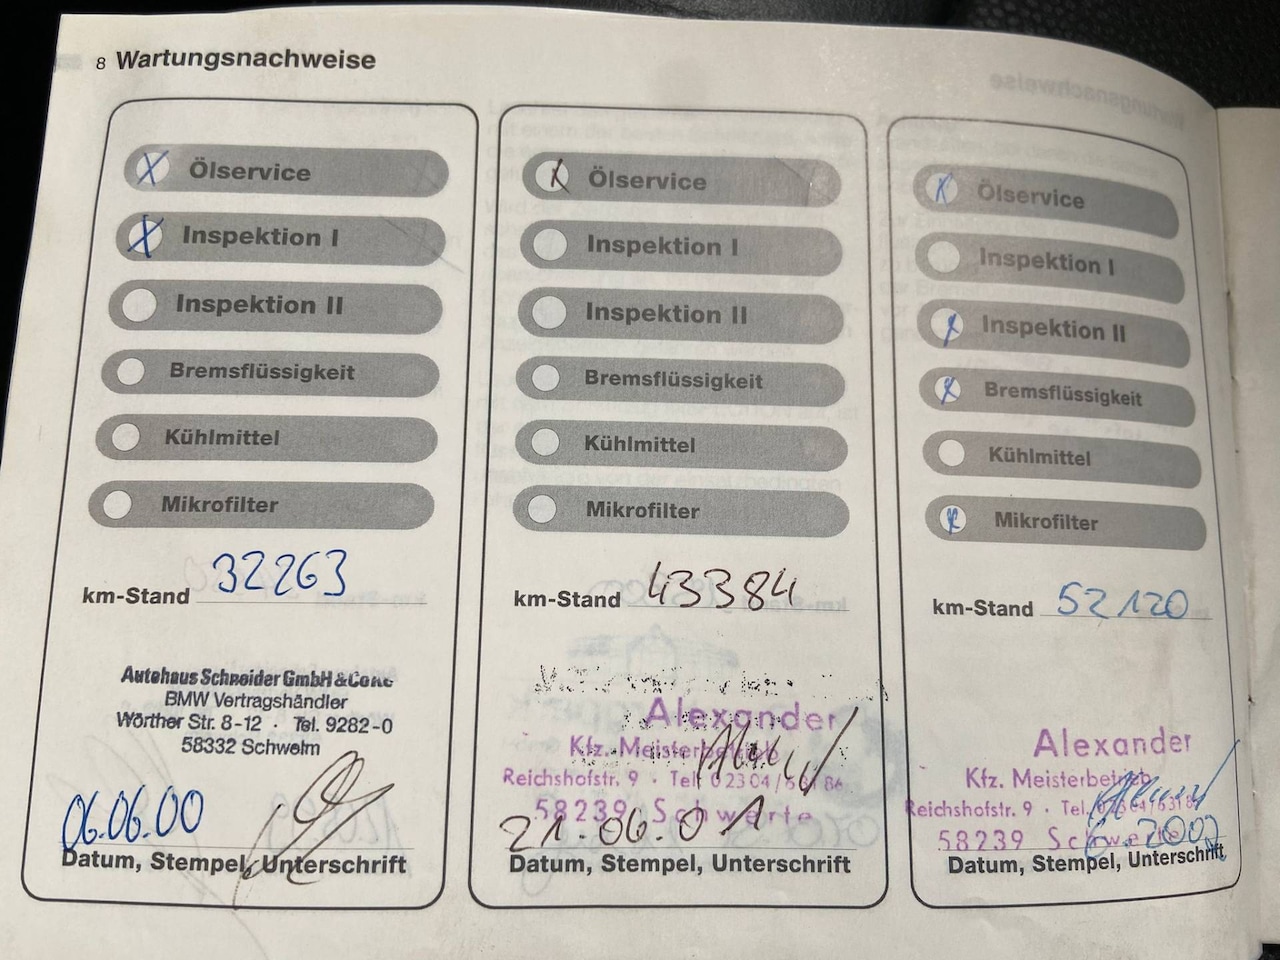 8 Wartungsnachweise
Ölservice
Inspektion I
Inspektion II
Bremsflüssigkeit
Kühlmittel
Mikrofilter
km-Stand 32263
Autohaus Schneider GmbH & Co
BMW Vertragshändler
Wörther Str. 8-12 · Tel. 9282-0
58332 Schwelm
06.06.00
Datum, Stempel, Unterschrift
Ölservice
Inspektion I
Inspektion II
Bremsflüssigkeit
Kühlmittel
Mikrofilter
km-Stand 43384
Alexander
Kfz. Meisterbetrieb
Reichshofstr. 9 · Tel. 02304/
58239 Schwerte
21.06.01
Datum, Stempel, Unterschrift
Ölservice
Inspektion I
Inspektion II
Bremsflüssigkeit
Kühlmittel
Mikrofilter
km-Stand 52120
Alexander
Kfz. Meisterbetrieb
Reichshofstr. 9 · Tel.
58239 Schwerte
Datum, Stempel, Unterschrift